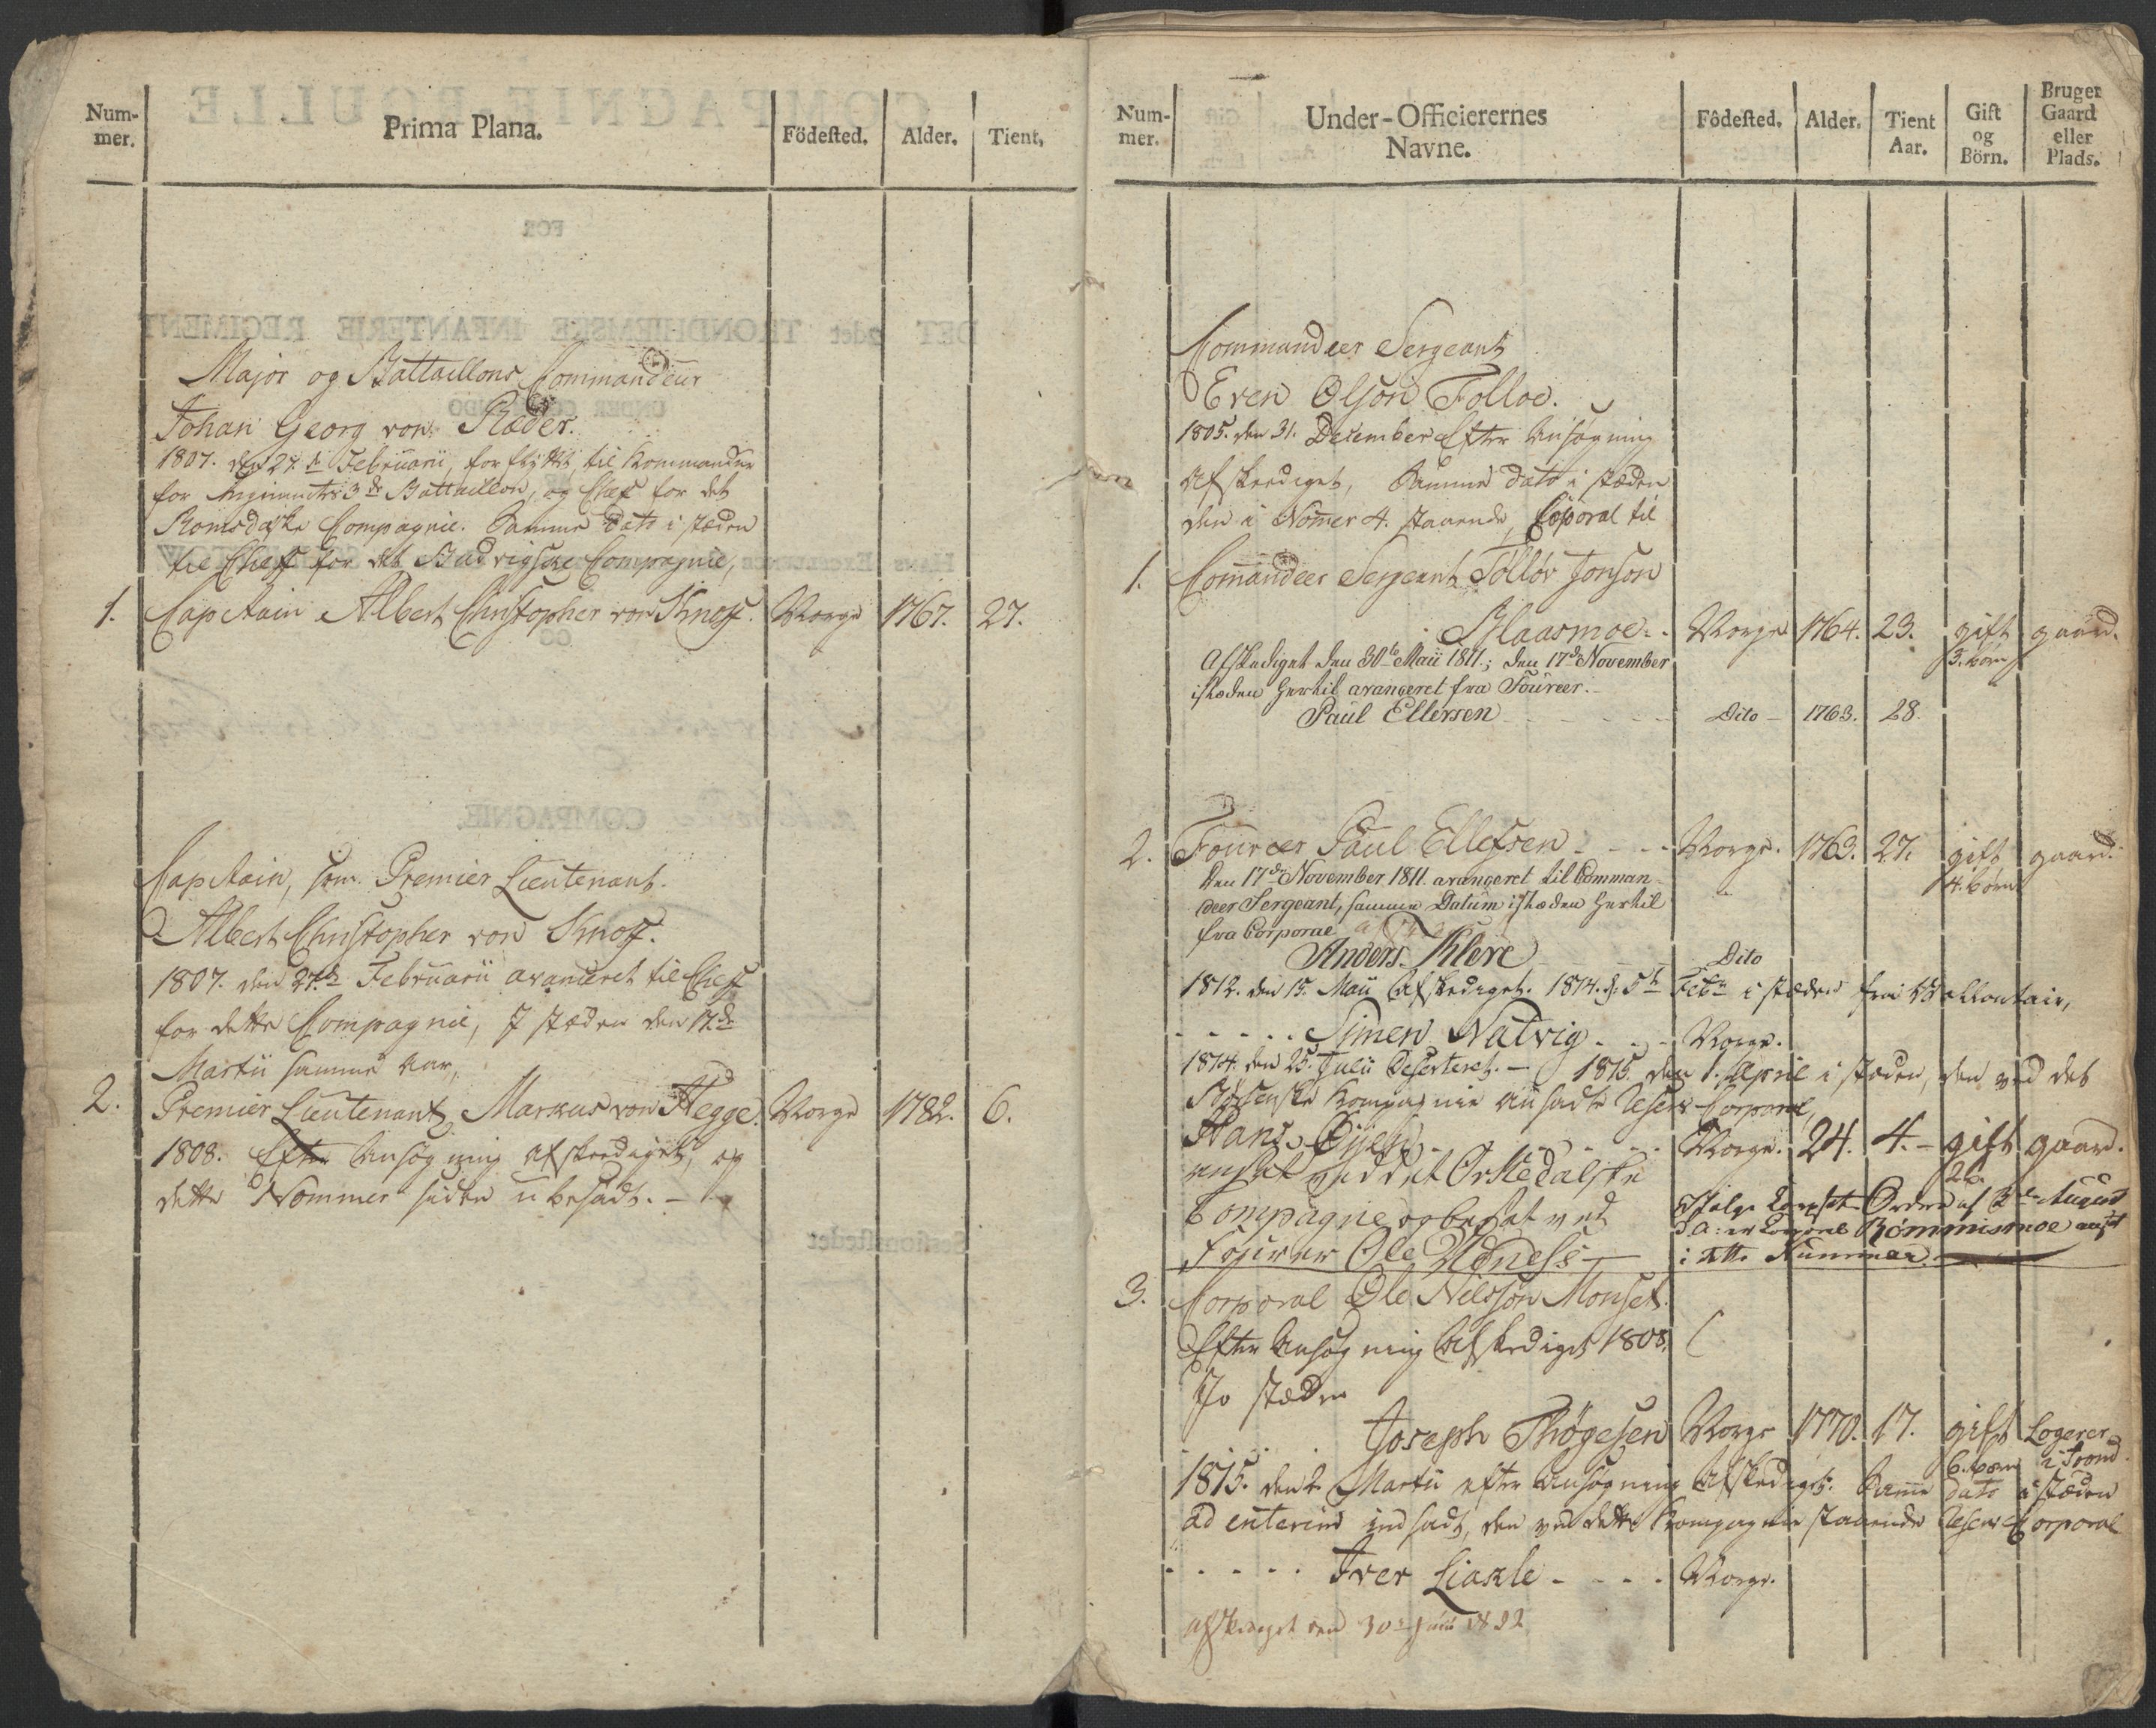 Num-
mer.
Prima Plana.
Födested.
Alder.
Tient.
Major og Battaillons Commandeur
Johan Georg von Ræder.
1807. den 27.de Februarii, forflyttet til Kommandeur
for Regimentets 3de Battaillon, og Chef for det
Romsdalske Compagnie. Samme Dato i stæden
til Cheff for det Compagnie,
1. Capitain Albert Christopher von Knoff. Norge 1767. 27.
Capitain, som Premier Lieutenant.
Albert Christopher von Knoff.
1807. den 27.de Februarii avanceret til Cheff
for dette Compagnie, I stæden den 17.de
Martii samme Aar,
2. Premier Lieutenant Markus von Hegge. Norge 1782. 6.
1808. Efter Ansøgning afskediget, og
dette Nommer siden ubesadt.
Num-
mer.
Under-Officierernes
Navne.
Födested.
Alder.
Tient
Aar.
Gift
og
Börn.
Bruger
Gaard
eller
Plads.
Commandeer Sergeant
Even Olson Folloe.
1805. den 31. December Efter Ansøgning
Afskeediget, Samme Dato i stæden
den i Nomer 4. staaende Coporal til
1. Comandeer Sergeant Tollov Jonson
Blaasmoe. Norge 1764. 23. gift gaard.
3. børn
Afskediget den 30te Maii 1811; den 17de November
istæden hertil avanceret fra Foureer.
Paul Ellersen Dito 1763. 28.
2. Foureer Paul Ellefsen Norge. 1763. 27. gift gaard.
4. børn
den 17de November 1811. avanceret til Comman-
deer Sergeant, samme Datum istæden hertil
fra Corporal
Anders Klere Dito
1812. den 15. Maii Afskediget. 1814. d: 5te Febr i stæden fra Vollontair,
Simen Natvig Norge.
1814. den 25. Julii Deserteret. 1815. den 1. April i stæden, den ved det
Børsenske Kompagnie ansadte Reserve Corporal,
Hans Øyen Norge. 24. 4. gift gaard.
2 b.
ansat ved det Ørkedalske
Compagnie og besat ved
Fourer Ole Ordre af August
d. A: er Corporal Rømmismoe ansat
i dette Nummer
3. Corporal Ole Nilsson Monset.
Efter Ansøgning Afskediget 1808.
I stæden
Joseph Thøgesen Norge 1770. 17. gift Logerer
6. børn i Trond
1815. den 2 Martii efter Ansøgning Afskediget. Samme dato i stæden
ad enterim indsadt, den ved dette Kompagnie staaende Reserve Corporal
Iver Liaxle Norge.
afskediget ved 30te Juni 1822